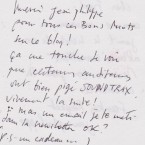 Merci Jean philippe
pour tous ces Bons Mots
sur ce blog!
ça me touche de voir
que certains auditeurs
ont bien pigé SOUNDTRAX
vivement la suite!
mais un email je le mets
dans la newsletter OK?
P.S: un cadeau